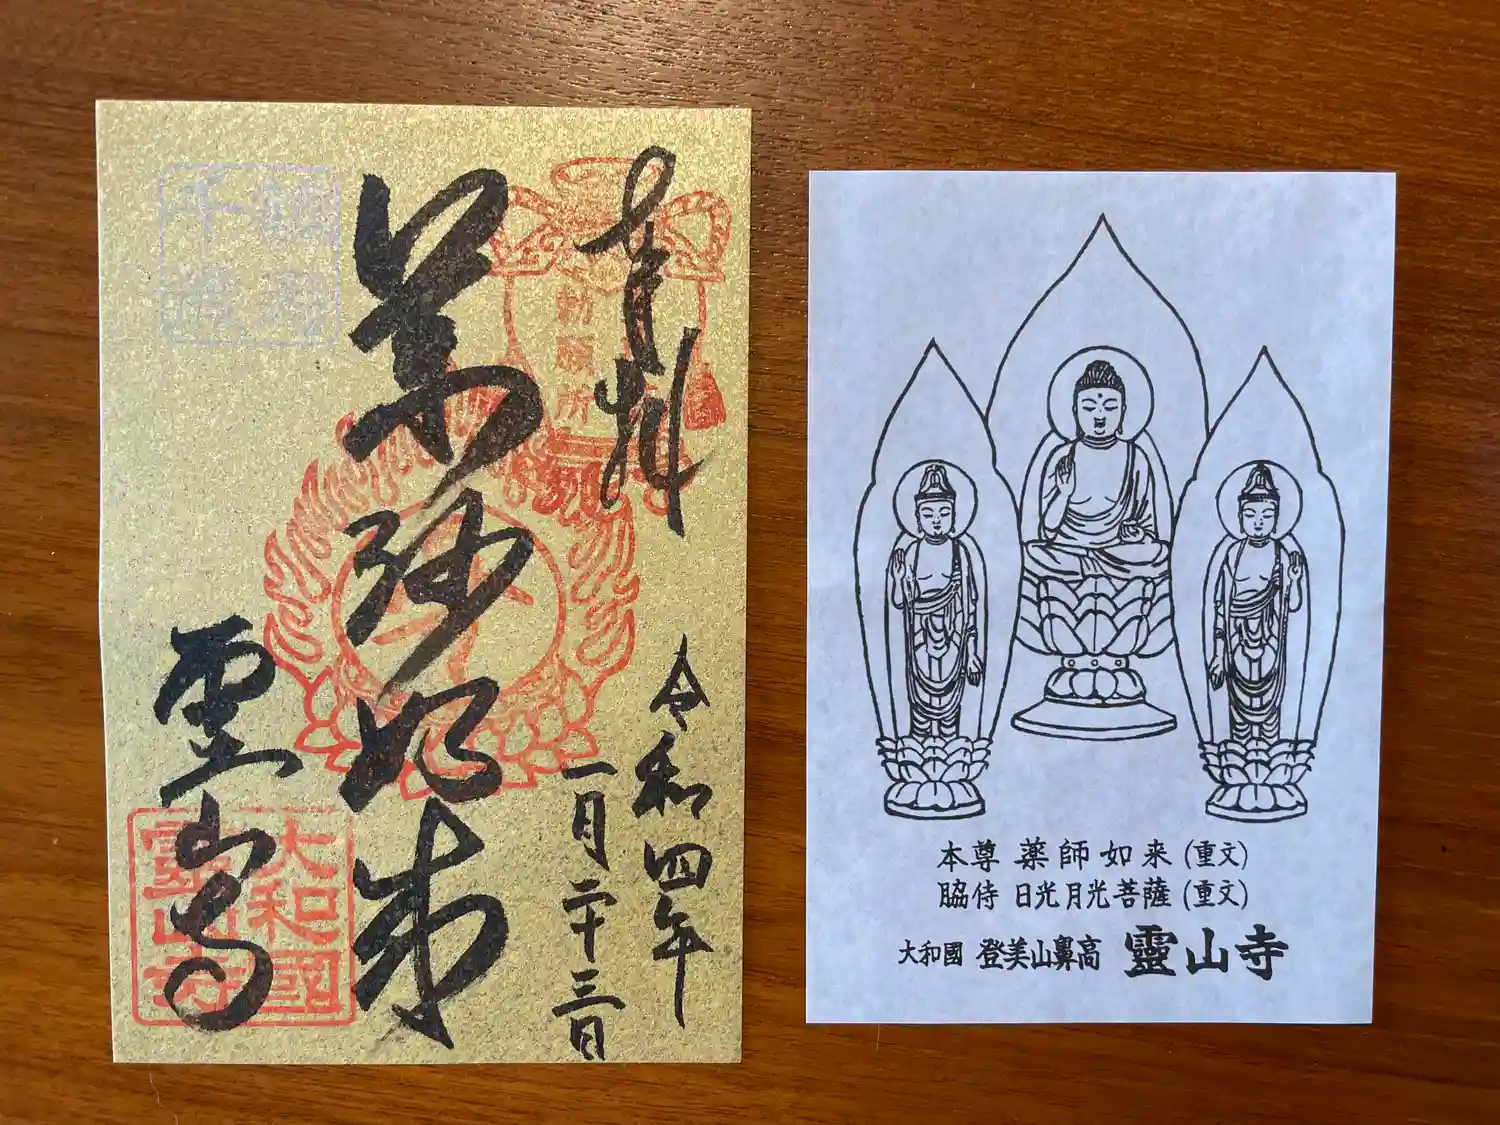 奉拝
勅願所
令和四年
一月二十三日
薬師如来
霊山寺
大和國
靈山寺
本尊 薬師如来 (重文)
脇侍 日光月光菩薩 (重文)
大和國 登美山鼻高 靈山寺